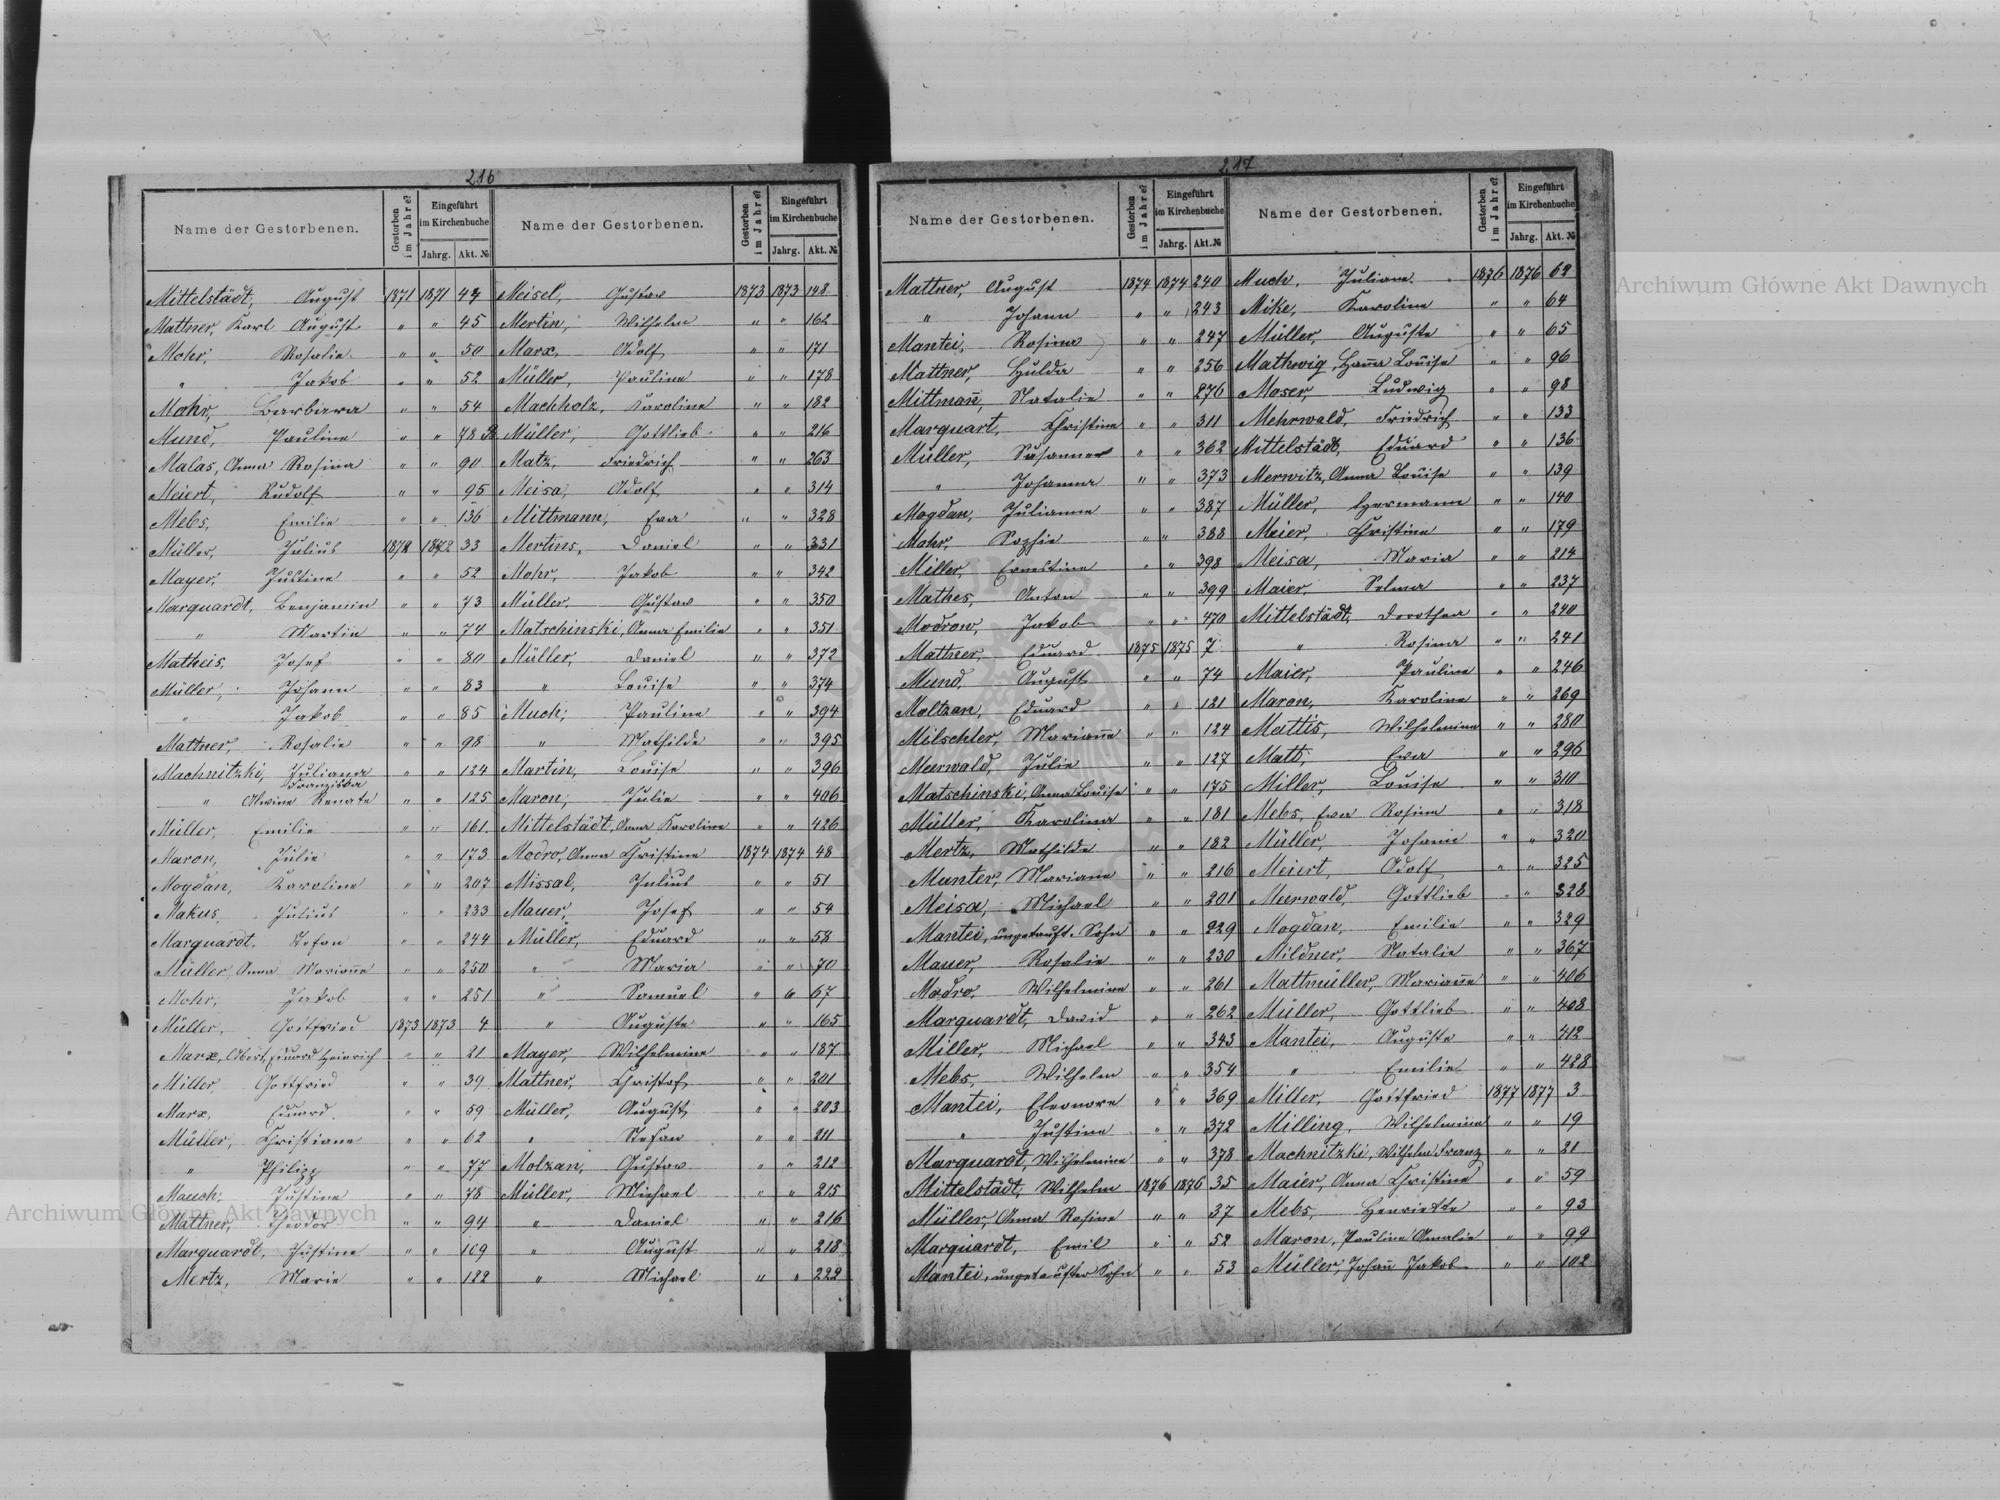 216
Name der Gestorbenen. Gestorben im Jahre? Eingeführt im Kirchenbuche Jahrg. Akt. №
Mittelstädt, August 1871 1871 44
Mattner, Karl August " " 45
Mohr, Rosalie " " 50
" Jakob " " 52
Mohr, Barbara " " 54
Mund, Pauline " " 78
Malas, Anna Rosina " " 90
Meiert, Rudolf " " 95
Mebs, Emilie " " 136
Müller, Julius 1872 1872 33
Mayer, Justine " " 52
Marquardt, Benjamin " " 73
" Martin " " 74
Matheis, Josef " " 80
Müller, Johann " " 83
" Jakob " " 85
Mattner, Rosalie " " 98
Machnitzki, Juliana Franziska " " 124
" Alwine Renate " " 125
Müller, Emilie " " 161
Maron, Julie " " 173
Mogdan, Karoline " " 207
Makus, Julius " " 233
Marquardt, Stefan " " 244
Müller, Anna Marian̄e " " 250
Mohr, Jakob " " 251
Müller, Gottfried 1873 1873 4
Marx, Albert, Eduard Heinrich " " 21
Miller Gottfried " " 39
Marx, Eduard " " 59
Müller, Christiane " " 62
" Philipp " " 77
Mauch, Justine " " 78
Mattner, Theodor " " 94
Marquardt, Justine " " 109
Mertz, Marie " " 122
Name der Gestorbenen. Gestorben im Jahre? Eingeführt im Kirchenbuche Jahrg. Akt. №
Meisel, Gustav 1873 1873 148
Mertin, Wilhelm " " 162
Marx, Adolf " " 171
Müller, Pauline " " 178
Machholz, Karoline " " 182
Müller, Gottlieb " " 216
Matz, Friedrich " " 263
Meisa, Adolf " " 314
Mittmann, Eva " " 328
Mertins, Daniel " " 331
Mohr, Jakob " " 342
Müller, Gustav " " 350
Matschinski, Anna Emilie " " 351
Müller, Daniel " " 372
" Louise " " 374
Much, Pauline " " 394
" Mathilde " " 395
Martin, Louise " " 396
Maron, Julie " " 406
Mittelstädt, Anna Karoline " " 426
Modro, Anna Christine 1874 1874 48
Missal, Julius " " 51
Mauer, Josef " " 54
Müller, Eduard " " 58
" Maria " " 70
" Samuel " " 67
" Auguste " " 165
Mayer, Wilhelmine " " 187
Mattner, Christof " " 201
Müller, August " " 203
" Stefan " " 211
Molzan, Gustav " " 212
Müller, Michael " " 215
" Daniel " " 216
" August " " 218
" Michael " " 222
217
Name der Gestorbenen. Gestorben im Jahre? Eingeführt im Kirchenbuche Jahrg. Akt. №
Mattner, August 1874 1874 240
" Johann " " 243
Mantei, Rosina " " 247
Mattner, Hulda " " 256
Mittman̄, Natalie " " 276
Marquart, Christine " " 311
Müller, Susanne " " 362
" Johanna " " 373
Mogdan, Julianne " " 387
Mohr, Sophie " " 388
Miller, Ernestine " " 398
Mathes, Anton " " 399
Modrow, Jakob " " 470
Mattner, Eduard 1875 1875 7
Mund, August " " 74
Moltzan, Eduard " " 121
Milschler, Marian̄e " " 124
Meerwald, Julie " " 127
Matschinski, Anna Louise " " 175
Müller, Karolina " " 181
Mertz, Mathilde " " 182
Munter, Mariane " " 216
Meisa, Michael " " 201
Mantei, ungetauft. Sohn " " 229
Mauer, Rosalie " " 230
Modro, Wilhelmine " " 261
Marquardt, David " " 262
Miller, Michael " " 343
Mebs, Wilhelm " " 354
Mantei, Eleonore " " 369
" Justine " " 372
Marquardt, Wilhelmine " " 378
Mittelstädt, Wilhelm 1876 1876 35
Müller, Anna Rosine " " 37
Marquardt, Emil " " 52
Mantei, ungetaufter Sohn " " 53
Name der Gestorbenen. Gestorben im Jahre? Eingeführt im Kirchenbuche Jahrg. Akt. №
Much, Juliane 1876 1876 62
Mike, Karoline " " 64
Müller, Auguste " " 65
Mathwig, Han̄a Louise " " 96
Moser, Ludwig " " 98
Mehrwald, Friedrich " " 133
Mittelstädt, Eduard " " 136
Merwitz, Anna Louise " " 139
Müller, Hermann " " 140
Meier, Christine " " 179
Meisa, Maria " " 214
Maier, Selma " " 237
Mittelstädt, Dorothea " " 240
" Rosina " " 241
Maier, Pauline " " 246
Maron, Karoline " " 269
Mattis, Wilhelmine " " 280
Matt, Eva " " 296
Miller, Louise " " 310
Mebs, Eva Rosine " " 318
Müller, Johann " " 320
Meiert, Adolf " " 325
Meerwald, Gottlieb " " 328
Mogdan, Emilie " " 329
Mildner, Natalie " " 367
Mathmüller, Marian̄e " " 406
Müller, Gottlieb " " 408
Mantei, Auguste " " 412
" Emilie " " 428
Miller, Gottfried 1877 1877 3
Milling, Wilhelmine " " 19
Machnitzki, Wilhelm Franz " " 21
Maier, Anna Christine " " 59
Mebs, Henriette " " 93
Maron, Pauline Amalie " " 99
Müller, Johan̄ Jakob " " 102
Archiwum Główne Akt Dawnych
Archiwum Główne Akt Dawnych